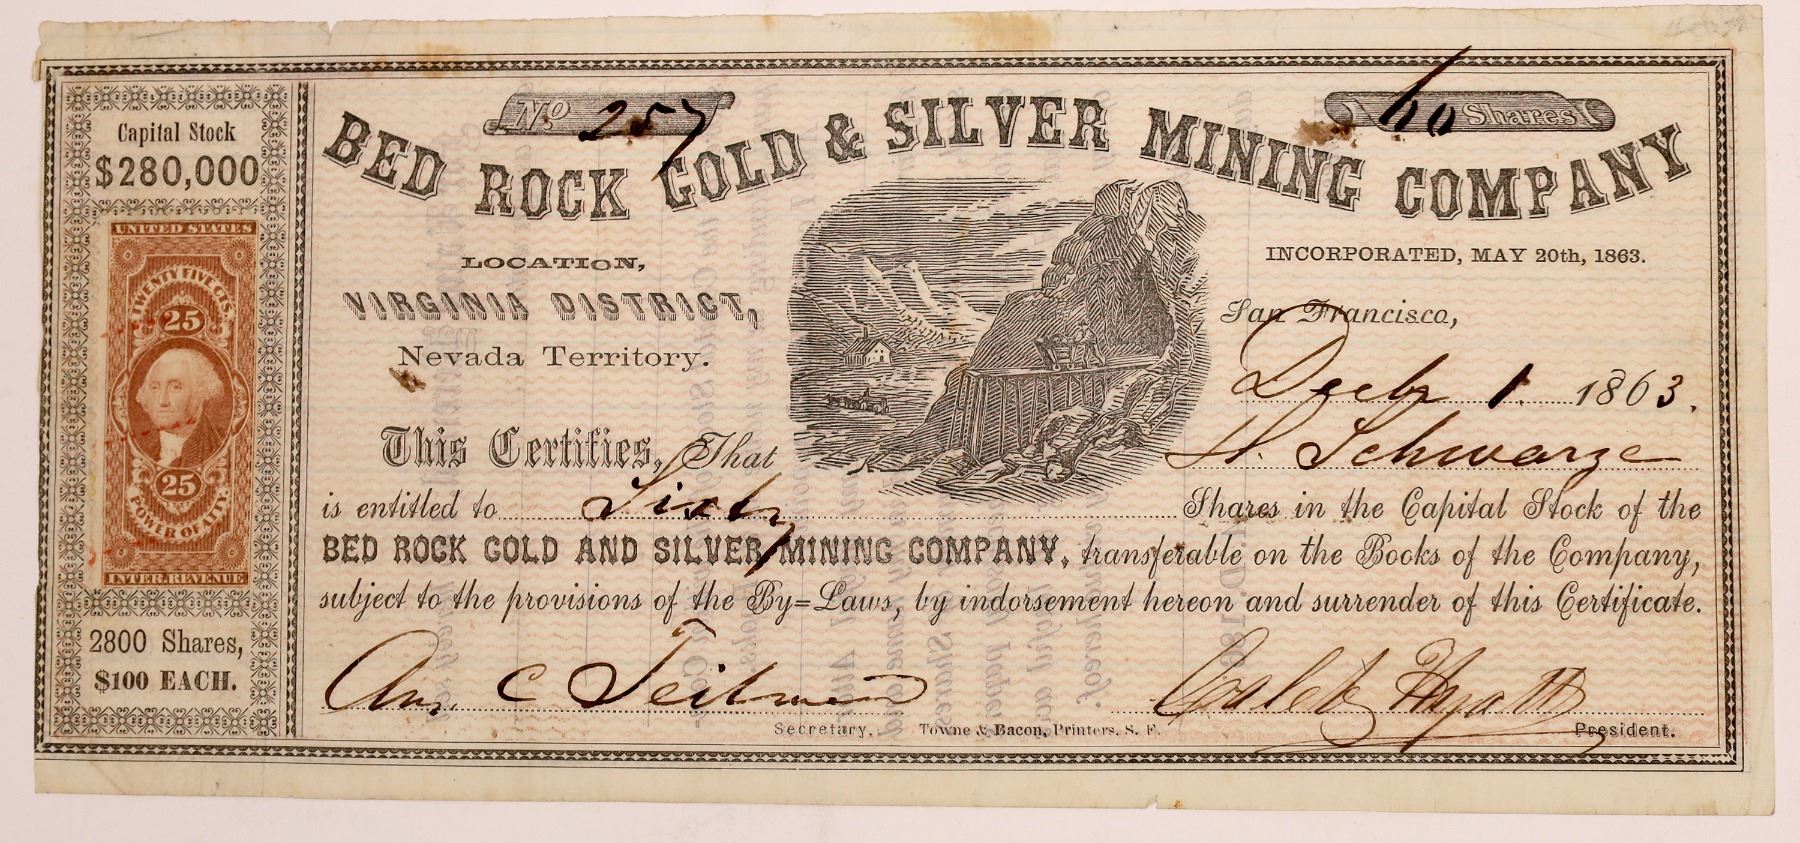 No. 257
60 Shares
BED ROCK GOLD & SILVER MINING COMPANY
Capital Stock
$280,000
UNITED STATES
TWENTY FIVE CTS.
25
25
POWER OF AT'Y.
INTER. REVENUE
2800 Shares,
$100 EACH.
LOCATION,
VIRGINIA DISTRICT,
Nevada Territory.
INCORPORATED, MAY 20th, 1863.
San Francisco,
Decbr 1. 1863.
This Certifies, That H. Schwarze
is entitled to Sixty Shares in the Capital Stock of the
BED ROCK GOLD AND SILVER MINING COMPANY, transferable on the Books of the Company,
subject to the provisions of the By=Laws, by indorsement hereon and surrender of this Certificate.
C Caleb Hyatt
Secretary. Towne & Bacon, Printers, S. F. President.